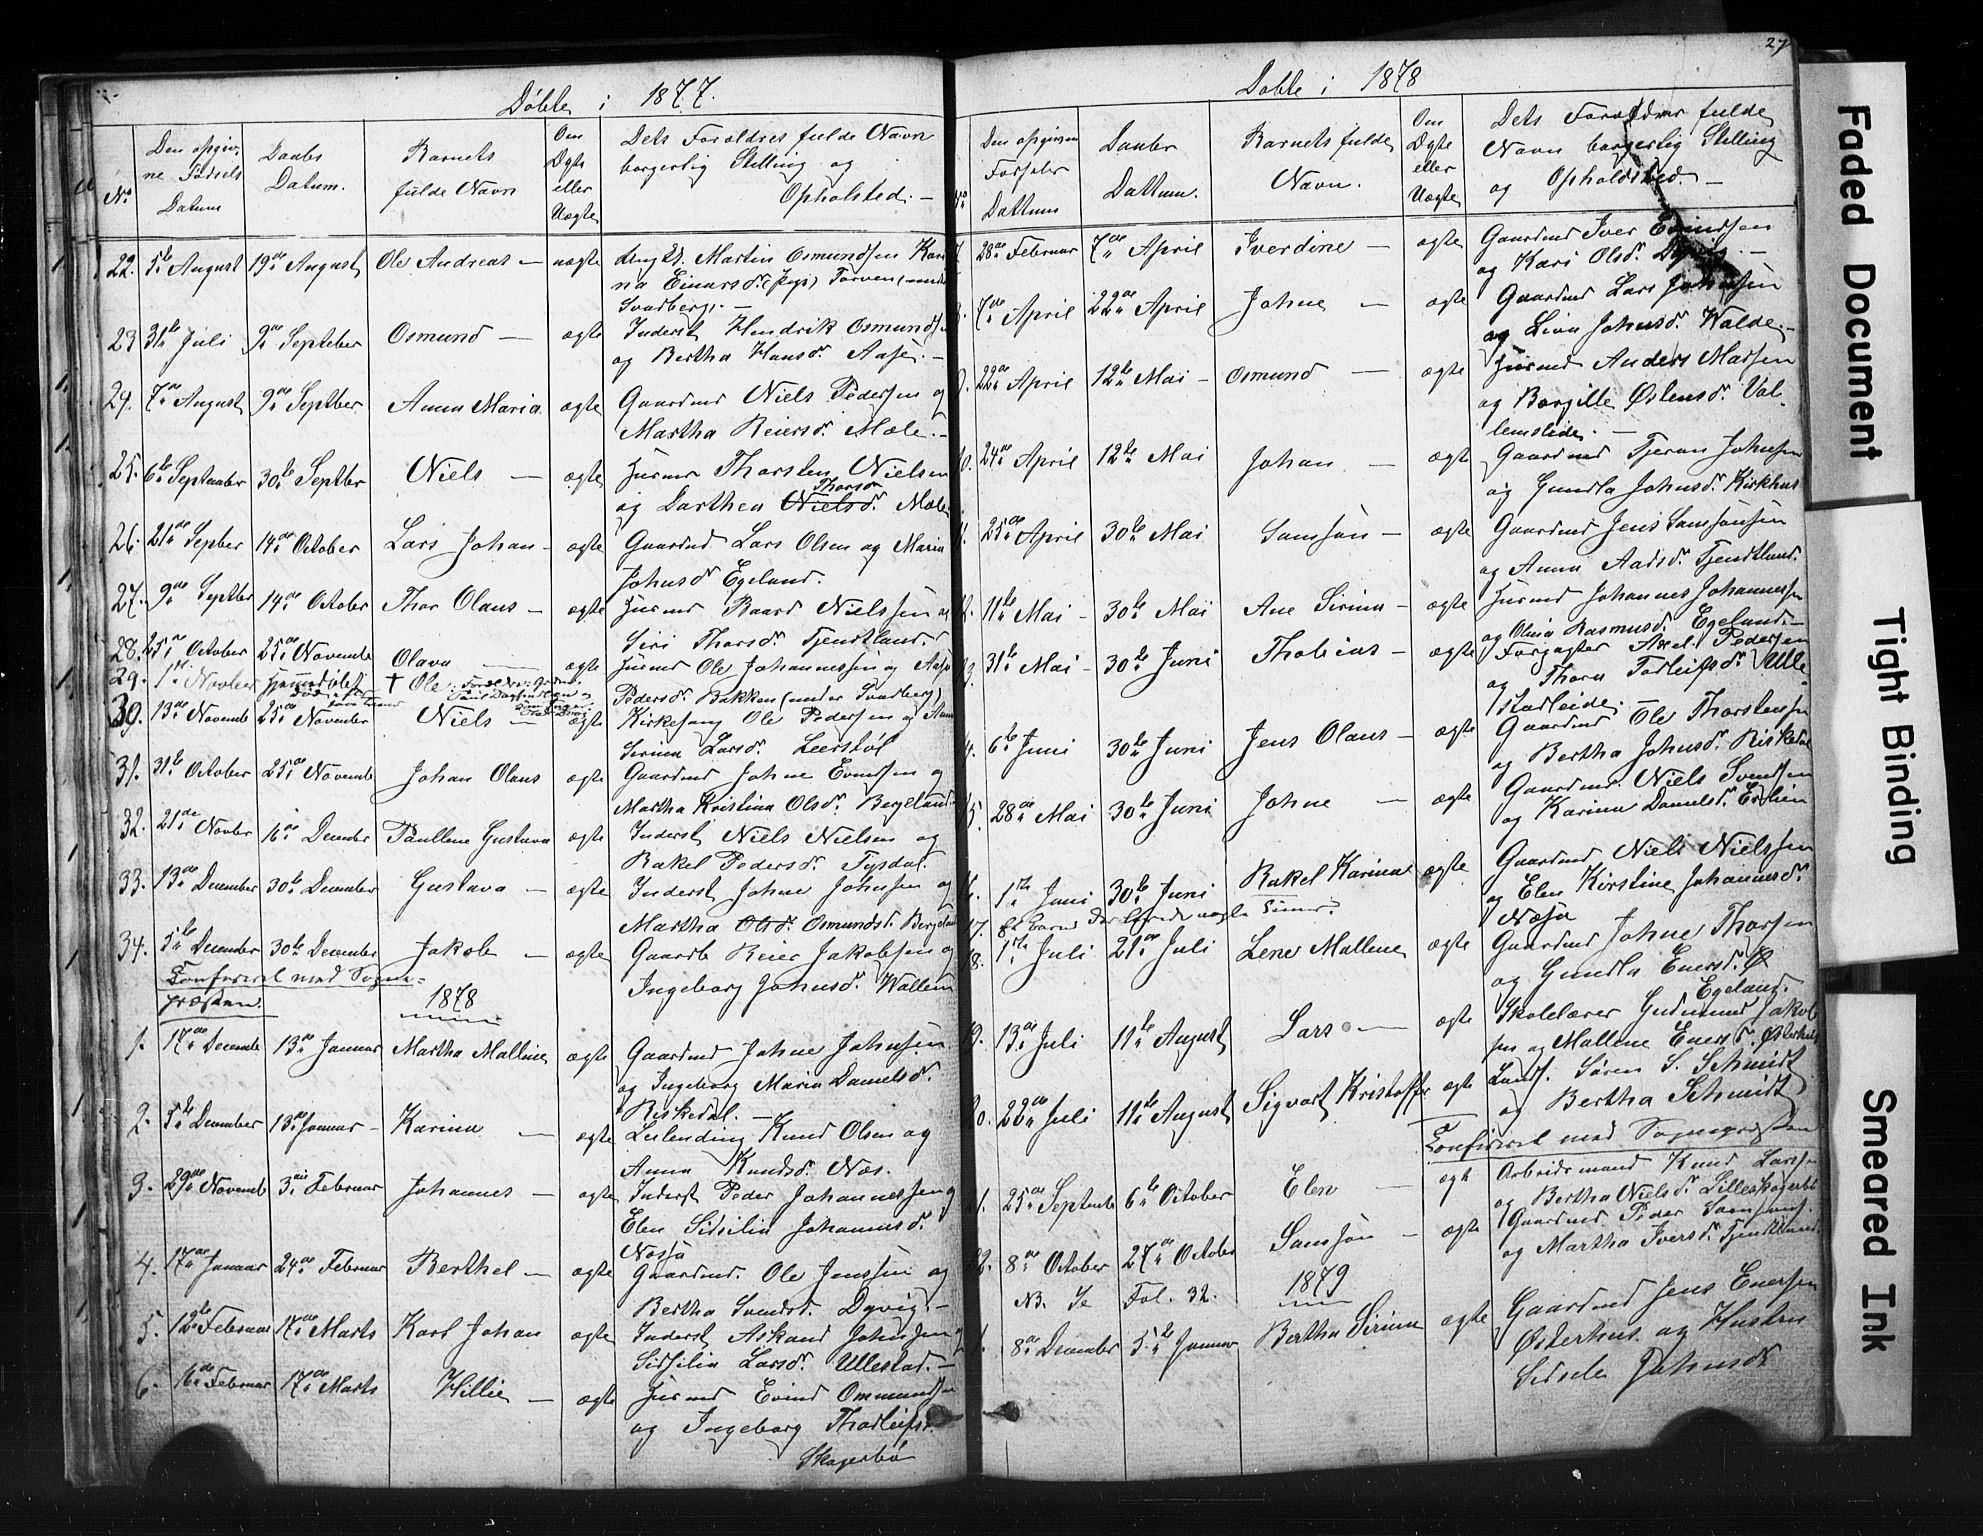 Døbte i 1877.
No
Den opgiv,
ne Fødsels
Datum
Daabs
Datum.
Barnets
fulde Navn
Om
Ægte
eller
Uægte
Dets Forældres fulde Navn
borgerlig Stilling og
Opholsted. -
22. 5te August 19de August Ole Andreas - uægte Ungk. Martin Osmundsen Kari
na Einarsd. (pige) Torven (under
Svadberg. -
23 31te Juli 9de Septeber Osmund - ægte Inderst Hendrik Osmunds
og Bertha Hansd. Aase. -
24. 7de August 9de Septber Anna Maria ægte Gaardmd Niels Pedersen og
Martha Reiersd. Mæle. -
25. 6te September 30te Septber Niels - ægte Husmd Thorsten Nielsen
Thorsd
og Dorthea Nielsd. Mæle
26. 21de Sepber 14de October Lars Johan - ægte Gaardmd Lars Olsen og Maria
Johnsd Egeland.
27. 9de Septber 14de October Thor Olaus - ægte Husmd Baard Nielssen og
Siri Thorsd. Tjendtland
28. 25de October 25de Novembe Olava - ægte Husmd Ole Johannessen og
29. 1te Novber hjemmedøbt † Ole
Pedersd. Bakken (under Svadberg)
30. 13de Novembe 25de November Niels - ægte Kirkesang Ole Pedersen og Anne
Serina Larsd. Leerstøl
31. 31te October 25de Novembe Johan Olaus ægte Gaardmd Johne Evindsen og
Martha Kristina Olsd. Bergeland
32. 21de Novber 16de December Paulline Gustava ægte Inderst Niels Nielsen og
Rakel Pedersd. Tysdal.
33. 13de December 30te December Gustava - ægte Inderst Johne Johnsen og
Martha Olsd. Osmundsd. Bergeland
34. 5te December 30te December Jakob - ægte Gaardb Reier Jakobsen og
Ingeborg Johnsd. Wallem
Konfereret med Sogne-
præsten
1878
1. 17de Decembe 13de Januar Martha Malline ægte Gaardmd Johne Johnsen
og Ingeborg Maria Danielsd.
Riskedal. -
2. 5te December 13de Januar - Karina - ægte Leilending Knud Olsen og
Anna Knudsd. Næs.
3. 29de Novemb 3die Februar Johannes - ægte Inderst Peder Johannessen og
Elen Sidsilia Johannesd.
Næsja
4. 17de Januar 24de Februar Berthel - ægte Gaardmd. Ole Jenssen og
Bertha Svendsd. Dyvig. -
5. 12te Februar 17de Marts Karl Johan ægte Inderst Askand Johnsen og
Sidsilia Larsd. Ullestad. -
6. 16de Februar 17de Marts Hillie - ægte Husmd Evind Ommundsen
og Ingeborg Thorleifsd.
Skogerbø
27
Døbte i 1878
No
Den opgivne
Forseler
Dattum
Daaber
Dattum.
Barnets fulde
Navn.
Om
Ægte
eller
Uægte
Dets Forældrer fulde
Navn borgerlig Stilling
og Opholdsted. -
7. 28de Februar 7de April Iverdine - ægte Gaardmd Iver Evindsen
og Kari Olsd.
8. 7de April 22de April Johne - ægte Gaardmd Lars Johnssen
og Liva Johnsd. Walde. -
9. 22de April 12te Mai - Osmund - ægte Husmd Anders Larsen
og Borgille Østensd. Val-
lemslide. -
10. 24de April 12te Mai Johan - ægte Gaardmd Tjeran Johnsen
og Gundla Johnsd. Kirkhus
11. 25de April 30te Mai Samson - ægte Gaardmd Jens Samsonsen
og Anna Aadsd. Tjendtland.
12. 11te Mai - 30te Mai Ane Sirina - ægte Husmd Johannes Johannessen
og Olina Rasmusd. Egeland. -
13. 31te Mai - 30te Juni Thobias - ægte Forpagter Axel Pedersen
og Thora Torleifsd. Ulle-
stadleide. -
14. 6te Juni 30te Juni Jens Olaus - ægte Gaardmd Ole Thorstensen
og Bertha Johnsd. Riskedal
15. 28de Mai 30te Juni Johne - ægte Gaardmd. Niels Svendsen
og Karina Danielsd.
16. 1te Juni 30te Juni Rakel Karina ægte Gaardmd Niels Nielssen
og Elen Kirstine Johannesd.
Næsja
17. Et Barn
18. 1te Juli 21de Juli Lene Mallene ægte Gaardmd Johne Thorsen
og Gundla Enersd. Ø
Egeland.
19. 13de Juli 11te August Lars - ægte Skolelærer Gudmund Jakob
sen og Mallene Enersd. Østerhus
20. 22de Juli 11te August Sigvart Kristoffer ægte Landh. Søren S. Schmidt
og Bertha Schmidt
Konfereret med Sognepræsten
21. 25de Septembe 6te October Elen - ægte Arbeidsmand Knud Larsen
og Bertha Nielsd. Lilleskogerbø
22. 8de October 27de October Samson - ægte Gaardmd Peder Samsons.
og Martha Iversd. Tjendtland.
NB. Se Fol. 32.
1879
1. 8de December 5te Januar Bertha Sirina ægte Gaardmd Jens Enersen
Østerhus og Hustru
Sidsele Johnsd
Faded Document
Tight Binding
Smeared Ink